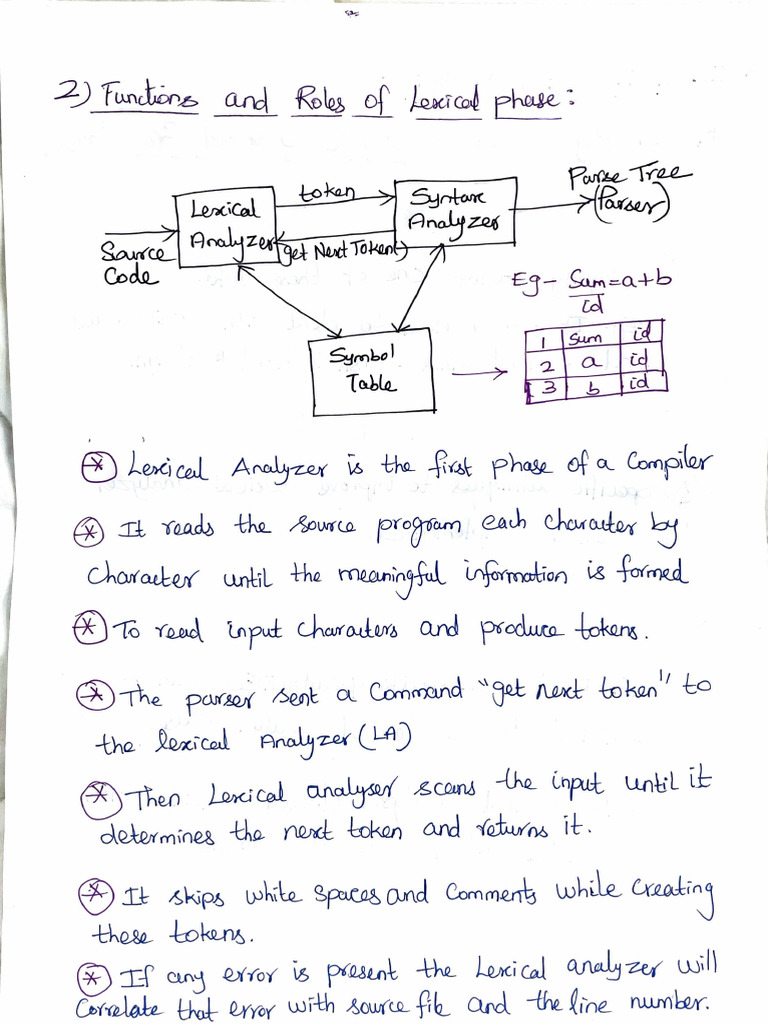 2) Functions and Roles of Lexical phase:
Lexical
Analyzer
token
Syntax
Analyzer
Parse Tree
(Parser)
Source
Code
get Next Token()
Symbol
Table
Eg- Sum=a+b
id
1 Sum id
2 a id
3 b id
* Lexical Analyzer is the first phase of a Compiler
* It reads the source program each character by
character until the meaningful information is formed
* To read input characters and produce tokens.
* The parser sent a Command "get next token" to
the lexical Analyzer (LA)
* Then Lexical analyser scans the input until it
determines the next token and returns it.
* It skips white spaces and Comments while Creating
these tokens.
* If any error is present the Lexical analyzer will
Correlate that error with source file and the line number.